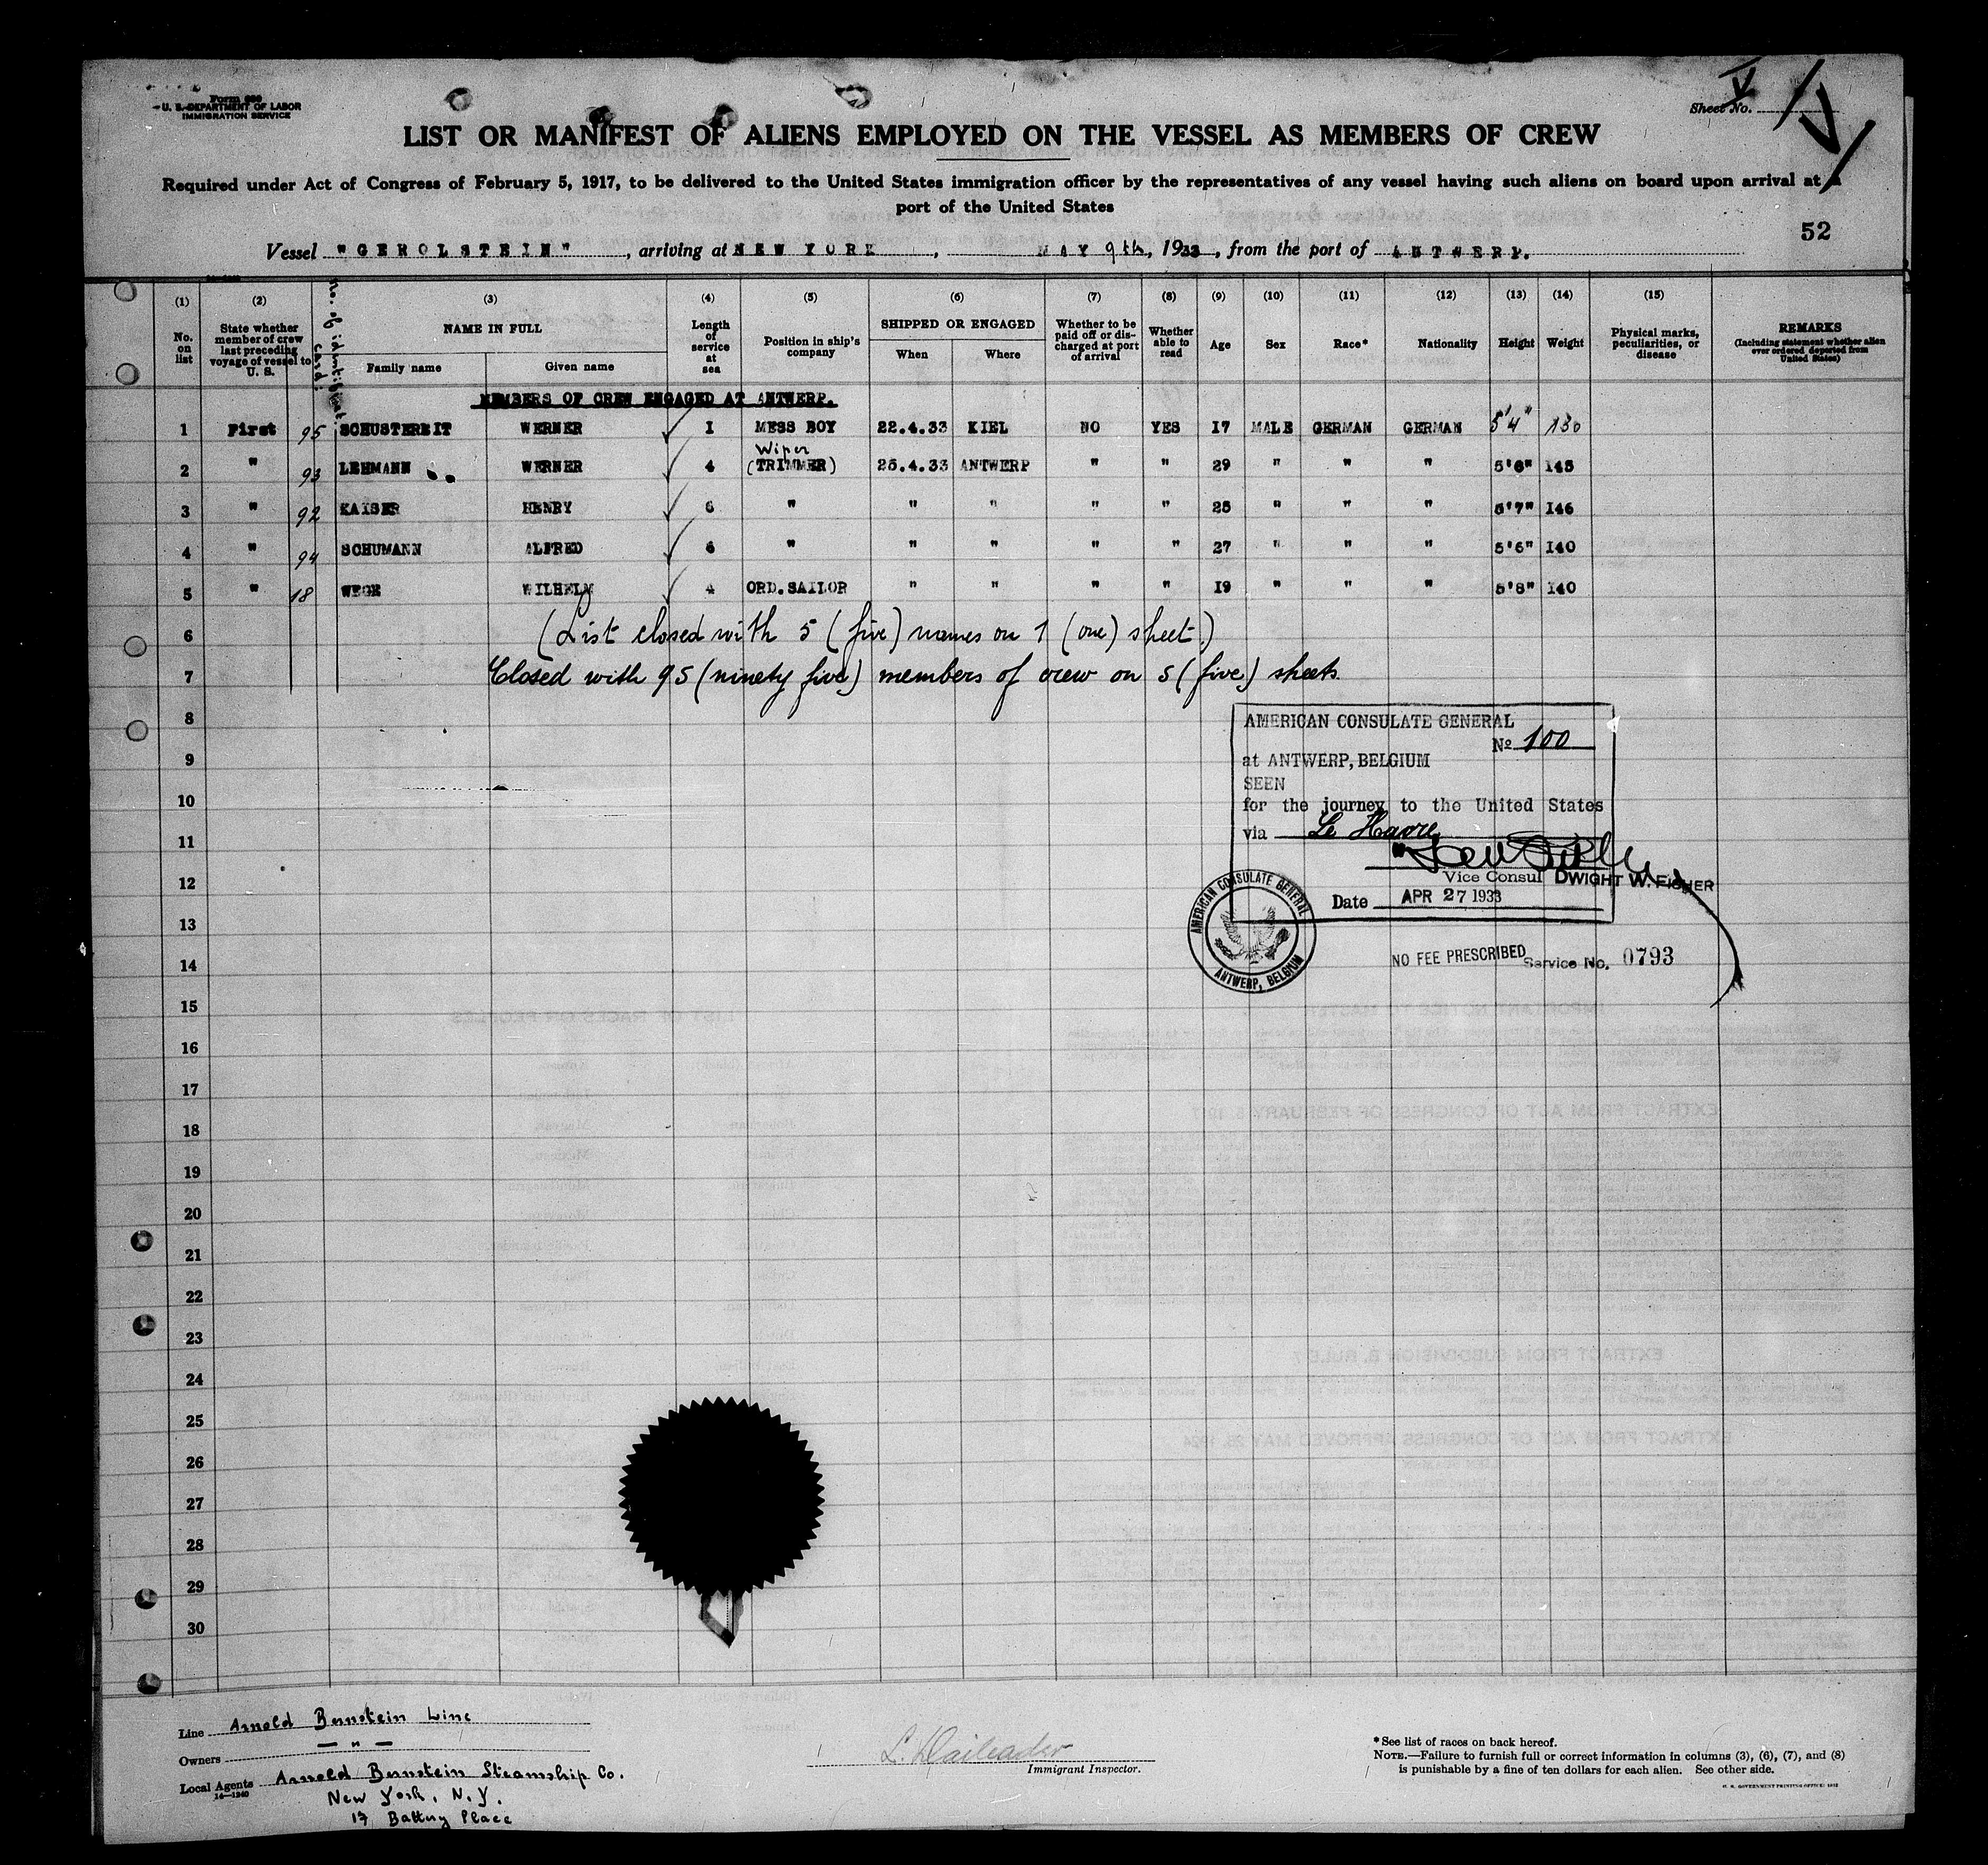 Form 689
U. S. DEPARTMENT OF LABOR
IMMIGRATION SERVICE
Sheet No. V
LIST OR MANIFEST OF ALIENS EMPLOYED ON THE VESSEL AS MEMBERS OF CREW
Required under Act of Congress of February 5, 1917, to be delivered to the United States immigration officer by the representatives of any vessel having such aliens on board upon arrival at a
port of the United States
52
Vessel "GEROLSTEIN", arriving at NEW YORK, MAY 9th, 1933, from the port of ANTWERP.
(1) (2) (3) (4) (5) (6) (7) (8) (9) (10) (11) (12) (13) (14) (15)
No. on list
State whether member of crew last preceding voyage of vessel to U. S.
No. of identification card:
NAME IN FULL
Family name
Given name
Length of service at sea
Position in ship's company
SHIPPED OR ENGAGED
When
Where
Whether to be paid off or discharged at port of arrival
Whether able to read
Age
Sex
Race*
Nationality
Height
Weight
Physical marks, peculiarities, or disease
REMARKS
(Including statement whether alien ever ordered deported from United States)
MEMBERS OF CREW ENGAGED AT ANTWERP.
1 First 95 SCHUSTEREIT WERNER 1 MESS BOY 22.4.33 KIEL NO YES 17 MALE GERMAN GERMAN 5'4" 130
Wiper
2 " 93 LEHMANN WERNER 4 (TRIMMER) 25.4.33 ANTWERP " " 29 " " " 5'6" 145
3 " 92 KAISER HENRY 6 " " " " " 25 " " " 5'7" 146
4 " 94 SCHUMANN ALFRED 6 " " " " " 27 " " " 5'6" 140
5 " 18 WEGE WILHELM 4 ORD.SAILOR " " " " 19 " " " 5'8" 140
6 (List closed with 5 (five) names on 1 (one) sheet.)
7 Closed with 95 (ninety five) members of crew on 5 (five) sheets.
8
9
10
11
12
13
14
15
16
17
18
19
20
21
22
23
24
25
26
27
28
29
30
AMERICAN CONSULATE GENERAL
No 100
at ANTWERP, BELGIUM
SEEN
for the journey to the United States
via Le Havre
Vice Consul DWIGHT W. FISHER
Date APR 27 1933
AMERICAN CONSULATE GENERAL
ANTWERP, BELGIUM
NO FEE PRESCRIBED
Service No. 0793
Line Arnold Bernstein Line
Owners — " —
Local Agents Arnold Bernstein Steamship Co.
14—1240
New York, N.Y.
17 Battery Place
Immigrant Inspector.
*See list of races on back hereof.
NOTE.—Failure to furnish full or correct information in columns (3), (6), (7), and (8)
is punishable by a fine of ten dollars for each alien. See other side.
U. S. GOVERNMENT PRINTING OFFICE: 1932